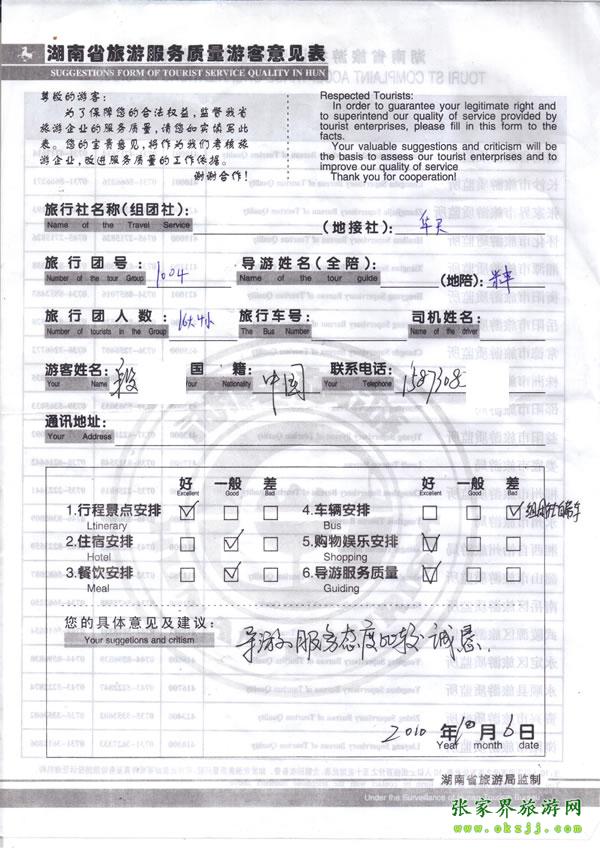 湖南省旅游服务质量游客意见表
SUGGESTIONS FORM OF TOURIST SERVICE QUALITY IN HUN
尊敬的游客:
为了保障您的合法权益,监督我省
旅游企业的服务质量,请您如实填写此
表。您的宝贵意见,将作为我们考核旅
游企业,改进服务质量的工作依据。
谢谢合作!
Respected Tourists:
In order to guarantee your legitimate right and
to superintend our quality of service provided by
tourist enterprises, please fill in this form to the
facts.
Your valuable suggestions and criticism will be
the basis to assess our tourist enterprises and to
improve our quality of service
Thank you for cooperation!
旅行社名称(组团社): (地接社): 华天
Name of the Travel Service
旅行团号: 1004 导游姓名(全陪): (地陪):
Number of the tour Group Name of the tour guide
旅行团人数: 16大4小 旅行车号: 司机姓名:
Number of tourists in the Group The Bus Number Name of the driver
游客姓名: 段 国籍: 中国 联系电话: 1587308
Your Name Your Nationality Your Telephone
通讯地址:
Your Address
好 一般 差 好 一般 差
Excellent Good Bad Excellent Good Bad
1.行程景点安排 4.车辆安排 组团社自带车
Ltinerary Bus
2.住宿安排 5.购物娱乐安排
Hotel Shopping
3.餐饮安排 6.导游服务质量
Meal Guiding
您的具体意见及建议:
Your suggetions and critism
导游的服务态度比较诚恳.
2010 年 10 月 6 日
Year month date
湖南省旅游局监制
Under the Surveillance of Hunan Tourism Bureau
张家界旅游网
www.okzjj.com